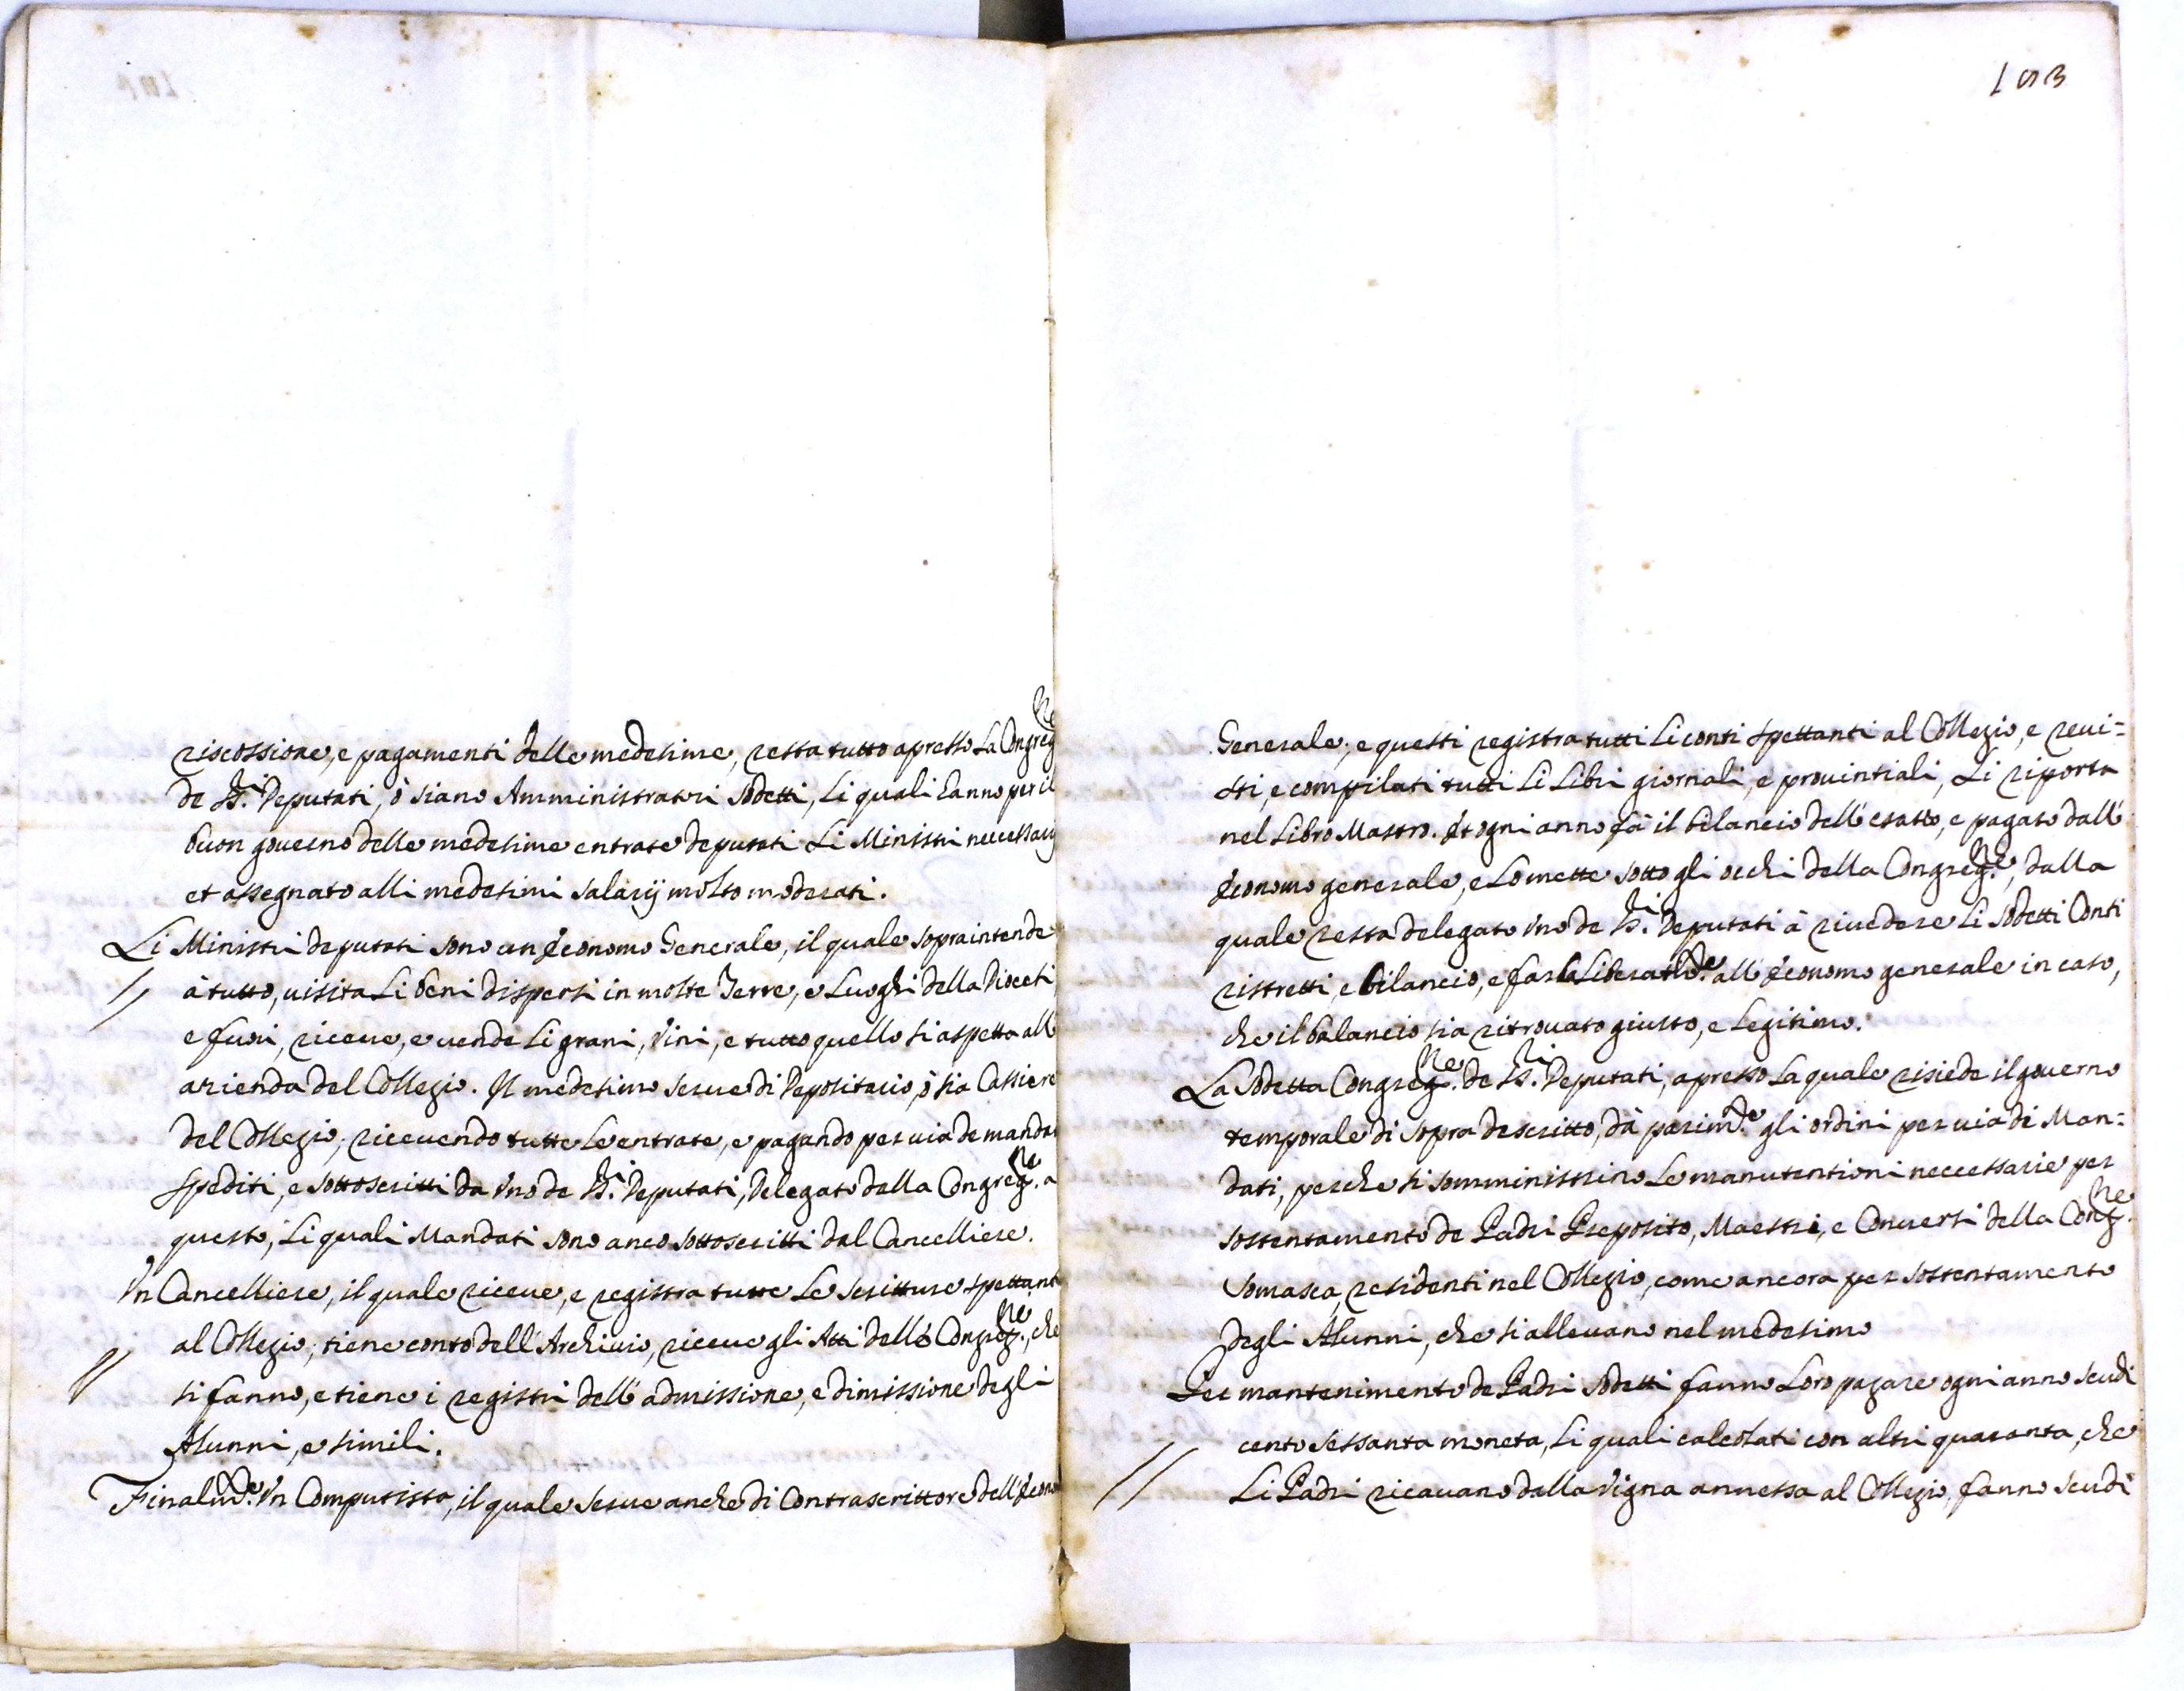 riscossione, e pagamenti delle medesime, resta tutto apresso la Congreg.ne
de SS.ri Deputati, ò siano Amministratori sodetti, li quali hanno per il
buon gouerno delle medesime entrate deputati li Ministri neccessarij
et assegnato alli medesimi salarij molto moderati.
Li Ministri deputati sono un Economo Generale, il quale sopraintende
à tutto, uisita li beni dispersi in molte Terre, e Luoghi della Diocesi
e fuori, riceue, e uende li grani, Vini, e tutto quello si aspetta all
azienda del Collegio. Il medesimo serue di Depositario, ò sia Cassiere
del Collegio, riceuendo tutte le entrate, e pagando per uia de mandati
spediti, e sottoscritti da Vno de SS.ri Deputati, Delegato dalla Congreg.ne a
questo, li quali Mandati sono anco sottoscritti dal Cancelliere.
Vn Cancelliere, il quale riceue, e registra tutte le scritture spettanti
al Collegio; tiene conto dell'Archiuio, riceue gli Atti delle Congreg.ne, che
si fanno, e tiene i registri dell'admissione, e dimissione degli
Alunni, e simili.
Finalm.te Vn Computista, il quale serue anche di Contrascrittore dell'Econo
153
Generale; e questi registra tutti li conti spettanti al Collegio, e reui=
sti, e compilati tutti li Libri giornali, e prouintiali, li riporta
nel Libro Mastro. Et ogni anno fà il bilancio dell'esatto, e pagato dall'
Economo generale, e lo mette sotto gli occhi della Congreg.ne, dalla
quale resta delegato Vno de SS.ri Deputati à riuedere li sodetti Conti
ristretti, e bilancio, e far la all'Economo generale in caso,
che il balancio sia ritrouato giusto, e legitimo.
La sodetta Congreg.ne de SS.ri Deputati, apresso la quale risiede il gouerno
temporale di sopra descritto, dà parim.te gli ordini per uia di Man=
dati, perche si somministrino le manutentioni neccessarie per
sostentamento de Padri Preposito, Maestri, e Conuersi della Cong.ne
Somasca, residenti nel Collegio, come ancora per sostentamento
degli Alunni, che si alleuano nel medesimo
Per mantenimento de Padri sodetti fanno loro pagare ogni anno scudi
cento sessanta moneta, li quali calcolati con altri quaranta, che
li Padri ricauano dalla Vigna annessa al Collegio, fanno scudi